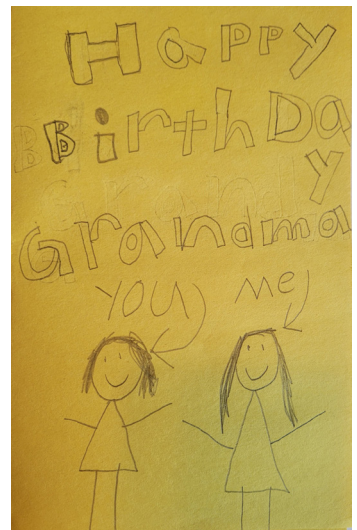 Happy
BirthDa
y
Grandma
you me